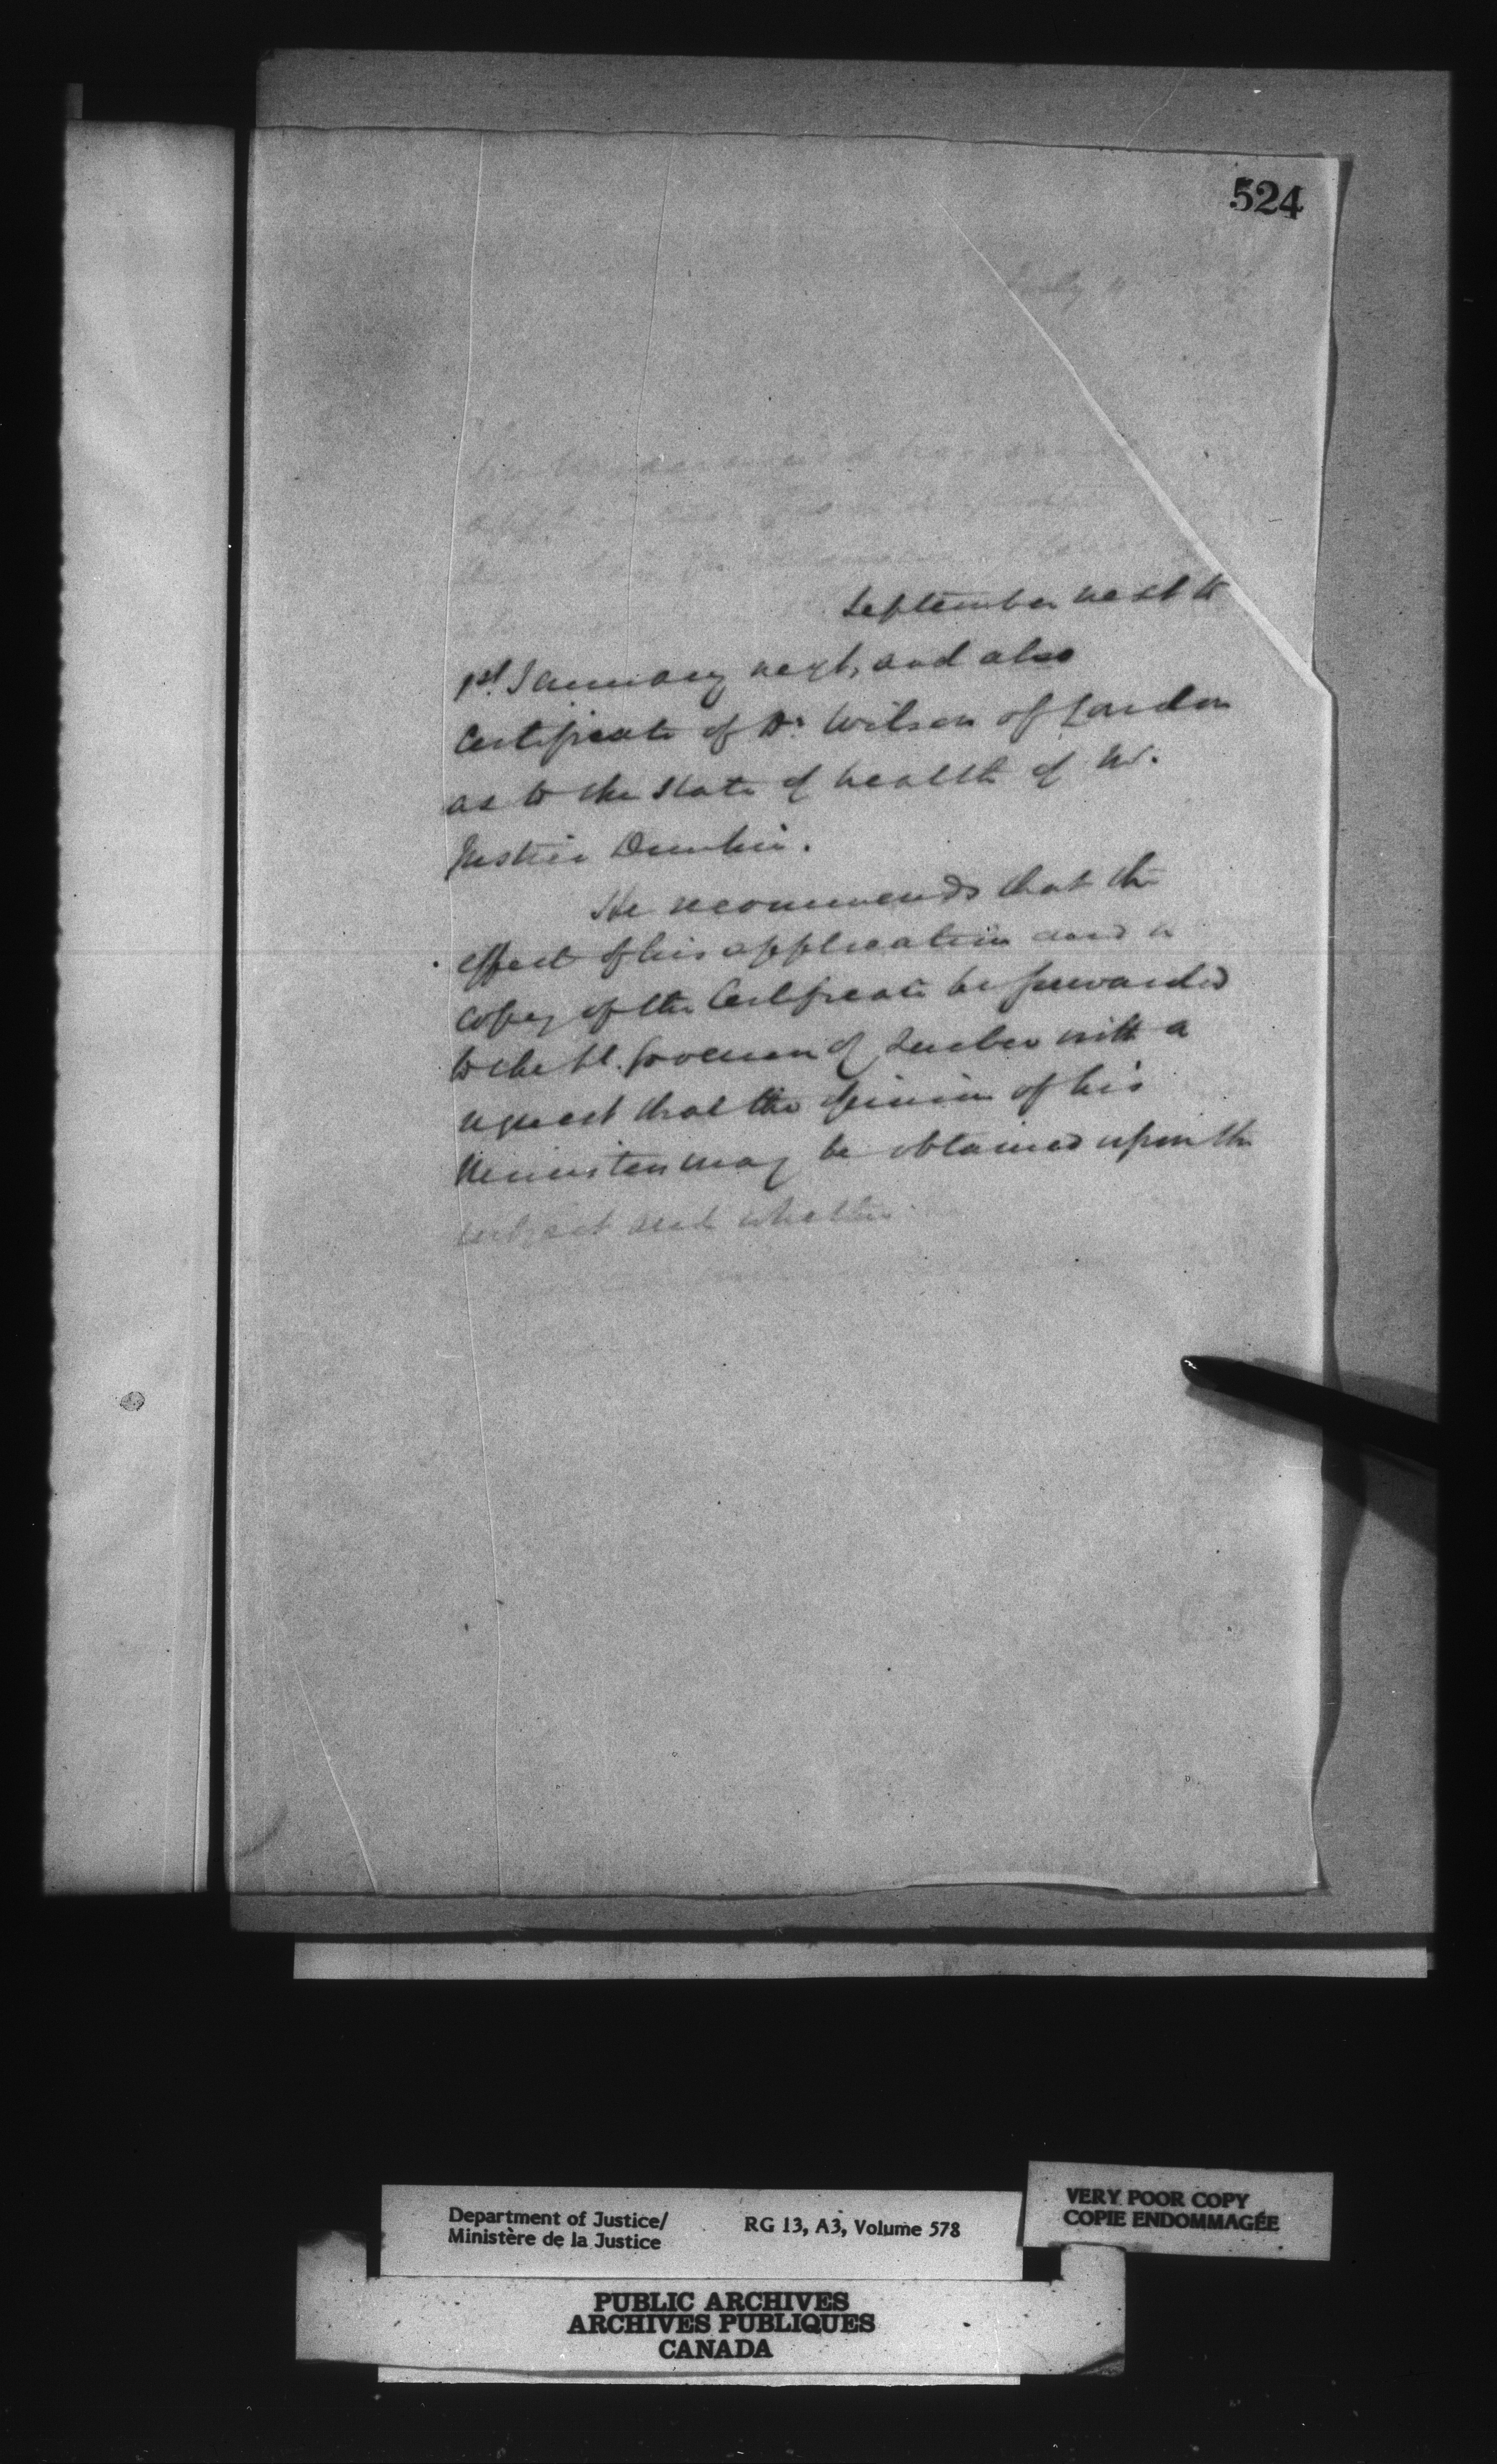 524
July
September next to
1st. January next, and also
Certificate of Dr. Wilson of London
as to the state of health of Mr.
Justice Dunkin.
He recommends that the
effect of his application and a
copy of the Certificate be forwarded
to the Lt. Governor of Quebec with a
request that the opinion of his
Ministers may be obtained upon the
subject and whether
Department of Justice/
Ministère de la Justice
RG 13, A3, Volume 578
VERY POOR COPY
COPIE ENDOMMAGÉE
PUBLIC ARCHIVES
ARCHIVES PUBLIQUES
CANADA